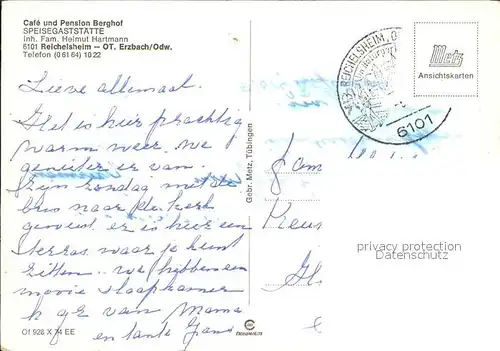 Café und Pension Berghof
SPEISEGASTSTÄTTE
Inh. Fam. Helmut Hartmann
6101 Reichelsheim — OT. Erzbach/Odw.
Telefon (0 61 64) 10 22
Lieve allemaal.
Het is hier prachtig
warm weer, we
genieten er van.
Zijn zondag met de
bus naar de kerk
geweest, er is hier een
terras waar je kunt
zitten. we hebben een
mooie slaapkamer
gr van Mama
en tante
Of 928 X 74 EE
Gebr. Metz, Tübingen
REICHELSHEIM, O
6101
Metz
Ansichtskarten
Fam
privacy protection
Datenschutz